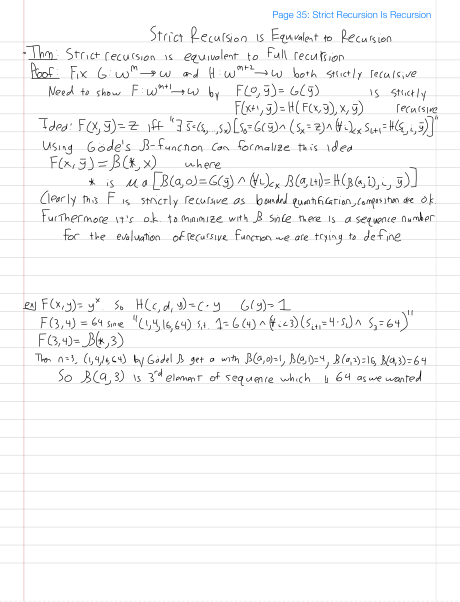 Page 35: Strict Recursion Is Recursion
Strict Recursion is Equivalent to Recursion
- Thm: Strict recursion is equivalent to Full recursion
Proof: Fix G: ω^m → ω and H: ω^{m+2} → ω both strictly recursive
Need to show F: ω^{m+1} → ω by F(0, ȳ) = G(ȳ) is strictly
F(x+1, ȳ) = H(F(x,ȳ), x, ȳ) recursive
Idea: F(x, ȳ) = z iff "∃ s̄ = (s₀ ... sₓ) [s₀ = G(ȳ) ∧ (sₓ = z) ∧ (∀i)_{i<x} s_{i+1} = H(s_i, i, ȳ)]"
Using Godel's β-function can formalize this idea
F(x, ȳ) = β(*, x) where
* is μa [β(a,0) = G(ȳ) ∧ (∀i)_{i<x} β(a,i+1) = H(β(a,i), i, ȳ)]
Clearly this F is strictly recursive as bounded quantification, composition are o.k.
Furthermore it's o.k. to minimize with β since there is a sequence number
for the evaluation of recursive function we are trying to define
ex) F(x,y) = y^x. So H(c,d,y) = c·y G(y) = 1
F(3,4) = 64 since "(1,4,16,64) s.t. 1 = G(4) ∧ (∀i<3)(s_{i+1} = 4·s_i) ∧ s₃ = 64)"
F(3,4) = β(*,3)
Then n=3, (1,4,16,64) by Godel β get a with β(a,0)=1, β(a,1)=4, β(a,2)=16, β(a,3)=64
So β(a,3) is 3^rd element of sequence which is 64 as we wanted